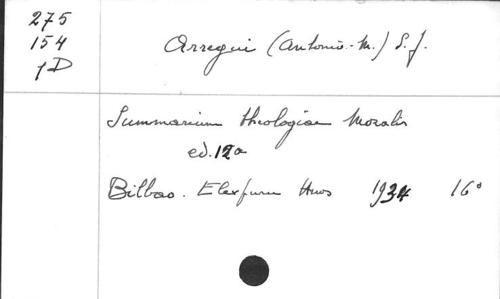 275
154
1D
Arregui (Antonio-M.) S.J.
Summarium theologiae Moralis
ed. 12a
Bilbao. Elexpuru Hnos 1934 16°